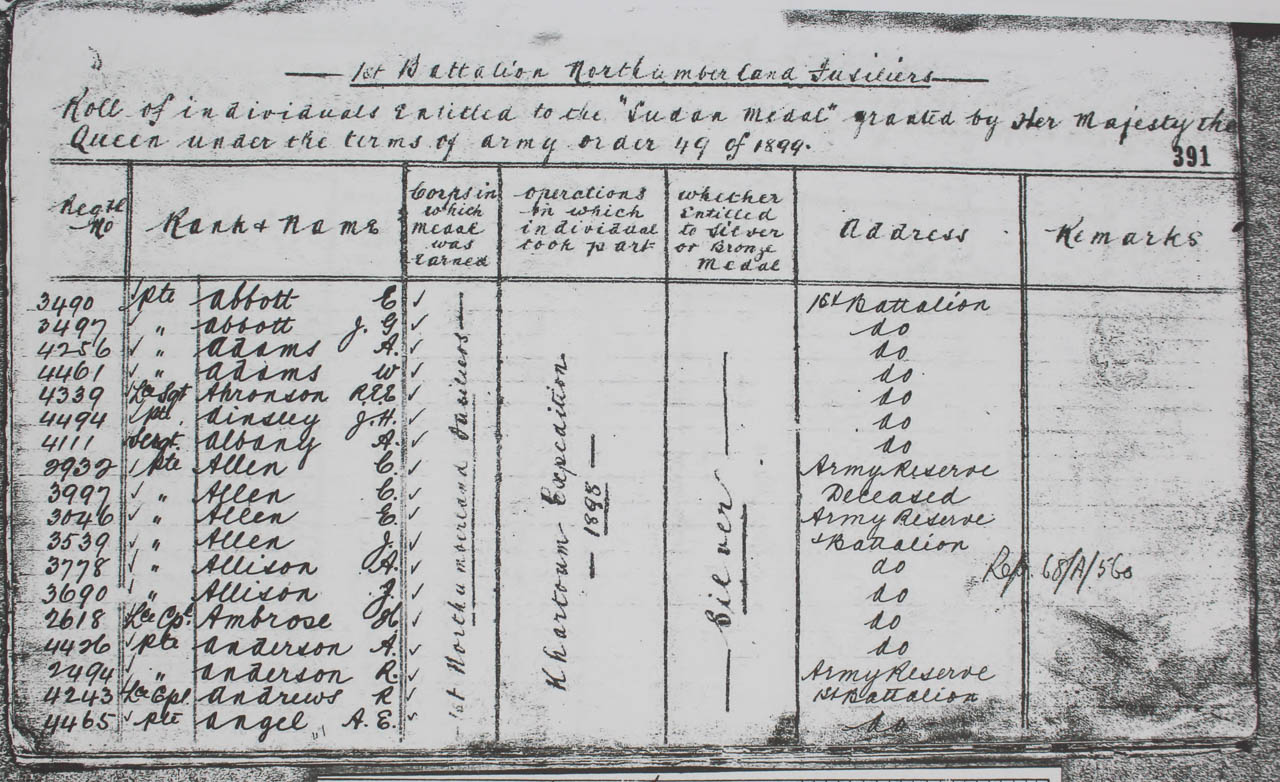 1st Battalion Northumberland Fusiliers
Roll of individuals Entitled to the "Sudan Medal" granted by Her Majesty the
Queen under the terms of army order 49 of 1899.
391
Regtl No
Rank & Name
Corps in which medal was Earned
operations in which individual took part
whether Entitled to Silver or Bronze Medal
Address
Remarks
3490 Pte Abbott C ✓ 1st Battalion
3497 " Abbott J. G ✓ do
4256 " Adams A. ✓ do
4461 " Adams W ✓ do
4339 Lce Sgt Ahronson R.E.E ✓ do
4494 Pte Ainsley J.H. ✓ do
4111 Sergt Albany A. ✓ do
2932 Pte Allen C. ✓ Army Reserve
3997 " Allen C. ✓ Deceased
3046 " Allen E. ✓ Army Reserve
3539 " Allen J. ✓ 1st Battalion
3778 " Allison A. ✓ do Rep. 68/A/560
3690 " Allison J. ✓ do
2618 Lce Cpl Ambrose H ✓ do
4426 Pte Anderson A. ✓ do
2494 " Anderson R. ✓ Army Reserve
4243 Lce Cpl Andrews R ✓ 1st Battalion
4465 Pte Angel A. E. ✓ do
1st Northumberland Fusiliers
Khartoum Expedition
1898
Silver